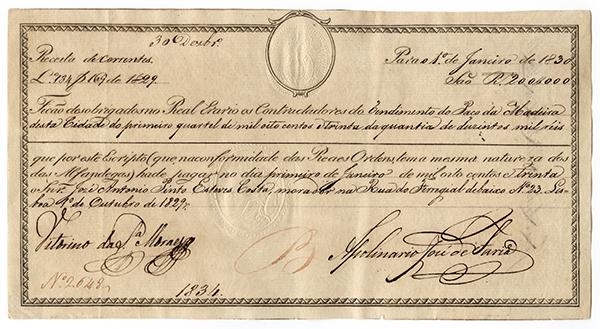 30 Dezbr.º
Receita de Correntes.
Para o 1.º de Janeiro de 1830
L.º 134 f 169 de 1829.
São R.s 200$000
Ficão desobrigados no Real Erario os Contractadores do Rendimento do Paço da Madeira
desta Cidade do primeiro quartel de mil oito centos e trinta da quantia de duzentos mil reis
que por este Escripto (que na conformidade das Reaes Ordens, tem a mesma natureza dos
das Alfandegas) ha de pagar no dia primeiro de Janeiro de mil oito centos e trinta
o Snr. José Antonio Pinto Esteves Costa, morador na Rua do Ferregial de baixo N.º 23. Lis
boa 1.º de Outubro de 1829.
Vitorino da S.ª Moraes
B
Apolinario José de Faria
N.º 2.648
1834.